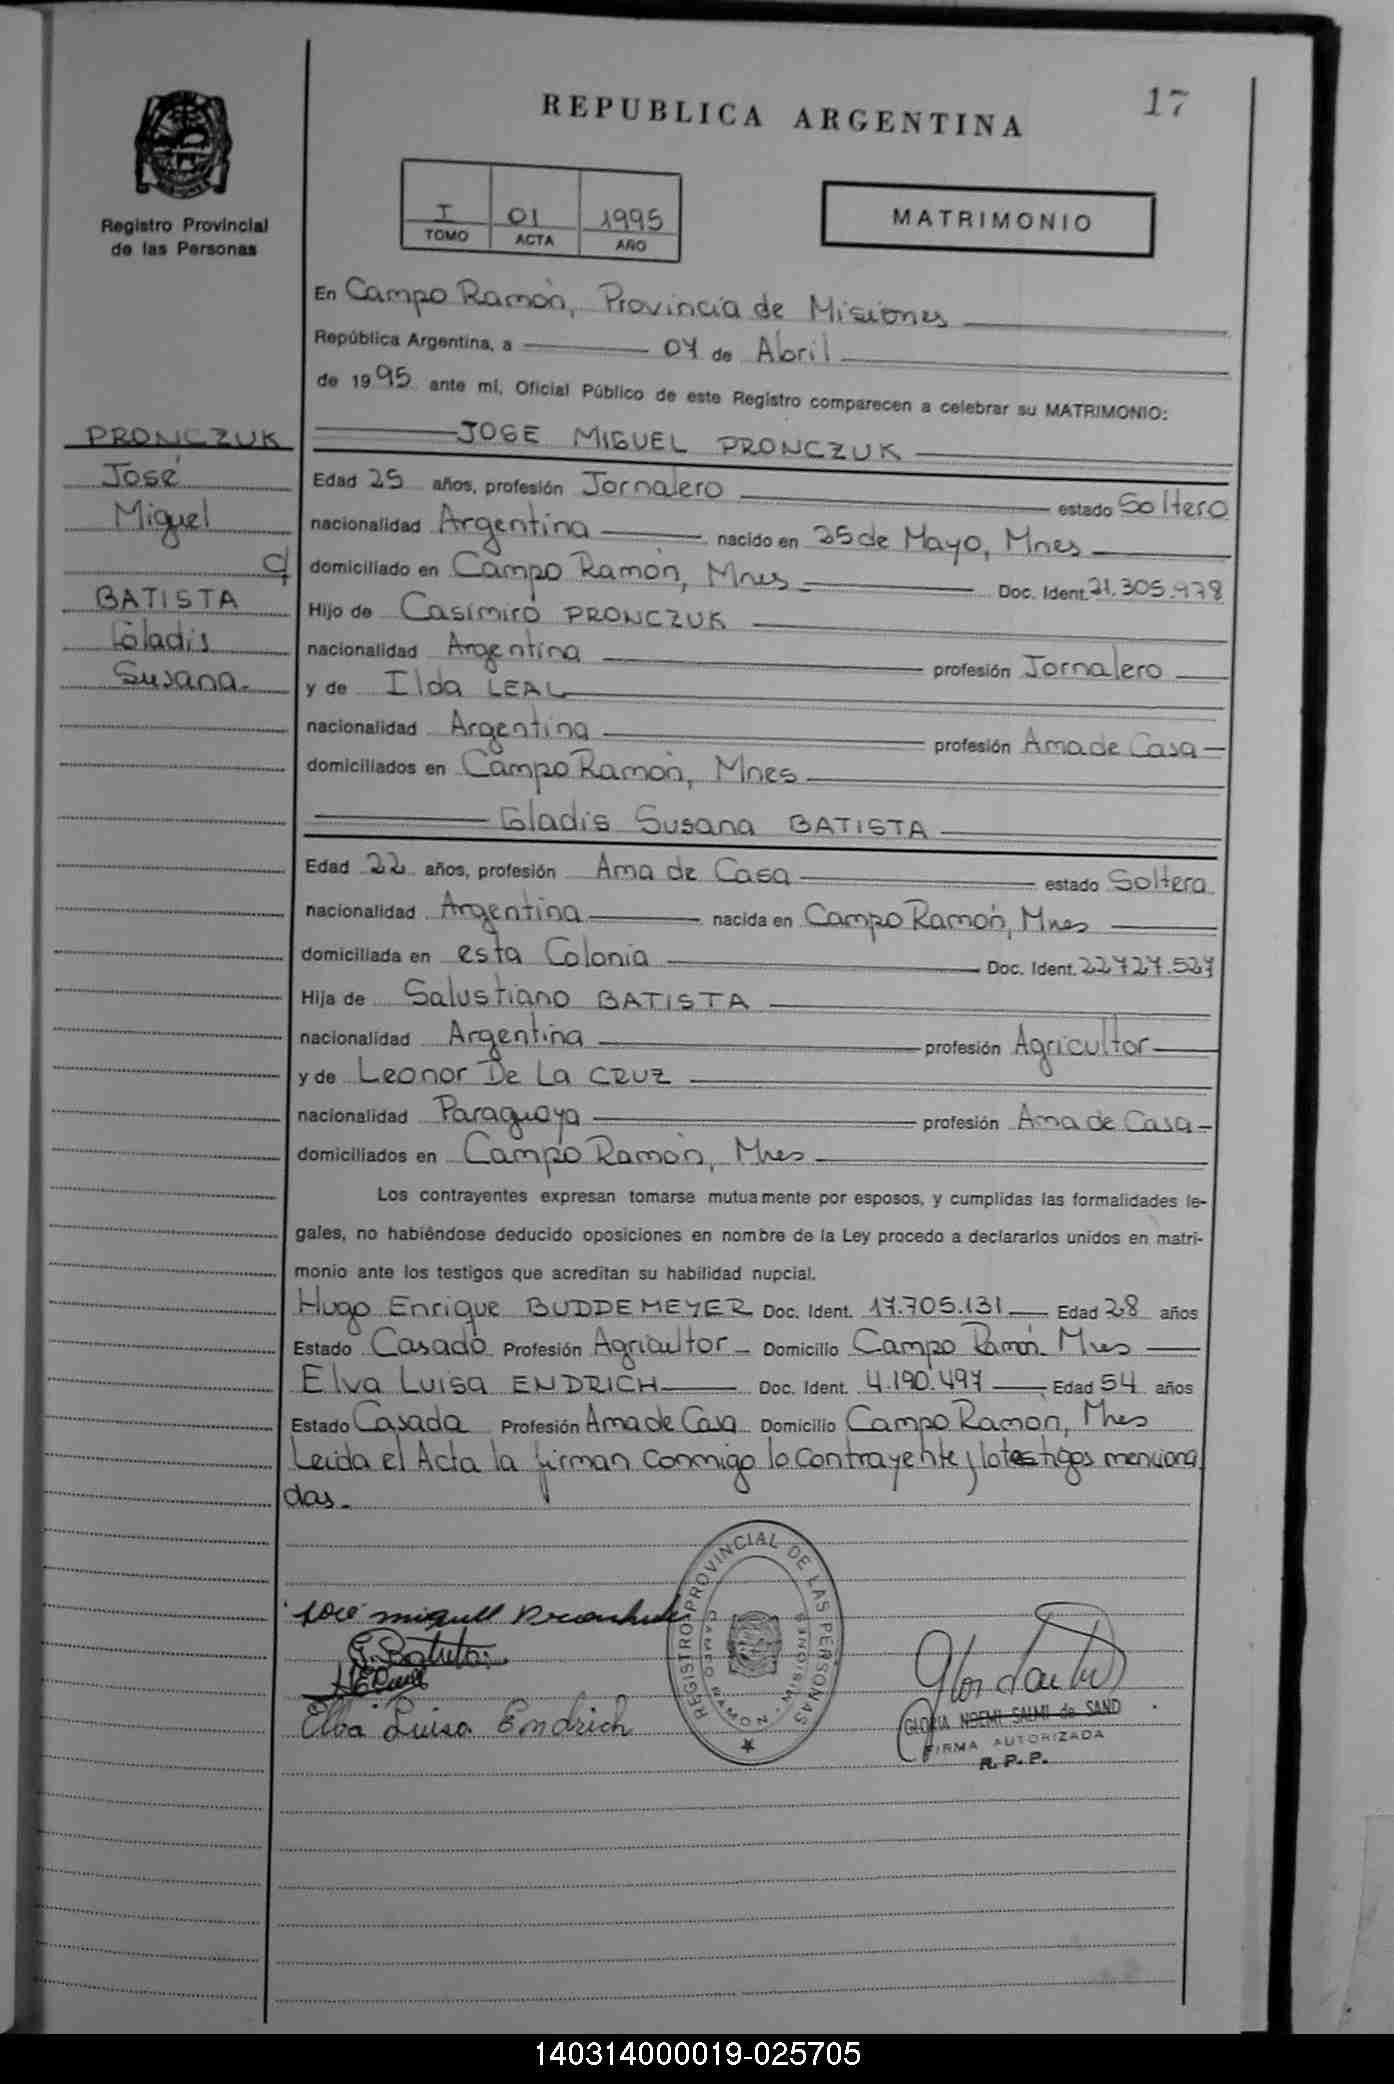 17
REPUBLICA ARGENTINA
Registro Provincial
de las Personas
I 01 1995
TOMO ACTA AÑO
MATRIMONIO
En Campo Ramón, Provincia de Misiones
República Argentina, a 07 de Abril
de 1995 ante mí, Oficial Público de este Registro comparecen a celebrar su MATRIMONIO:
PRONCZUK
José
Miguel
BATISTA
Gladis
Susana.
JOSE MIGUEL PRONCZUK
Edad 25 años, profesión Jornalero estado Soltero
nacionalidad Argentina nacido en 25 de Mayo, Mnes
domiciliado en Campo Ramón, Mnes Doc. Ident. 21.305.978
Hijo de Casimiro PRONCZUK
nacionalidad Argentina profesión Jornalero
y de Ilda LEAL
nacionalidad Argentina profesión Ama de Casa
domiciliados en Campo Ramón, Mnes
Gladis Susana BATISTA
Edad 22 años, profesión Ama de Casa estado Soltera
nacionalidad Argentina nacida en Campo Ramón, Mnes
domiciliada en esta Colonia Doc. Ident. 22727.527
Hija de Salustiano BATISTA
nacionalidad Argentina profesión Agricultor
y de Leonor De La CRUZ
nacionalidad Paraguaya profesión Ama de Casa
domiciliados en Campo Ramón, Mnes
Los contrayentes expresan tomarse mutuamente por esposos, y cumplidas las formalidades le-
gales, no habiéndose deducido oposiciones en nombre de la Ley procedo a declararlos unidos en matri-
monio ante los testigos que acreditan su habilidad nupcial.
Hugo Enrique BUDDEMEYER Doc. Ident. 17.705.131 Edad 28 años
Estado Casado Profesión Agricultor Domicilio Campo Ramón Mnes
Elva Luisa ENDRICH Doc. Ident. 4.190.497 Edad 54 años
Estado Casada Profesión Ama de Casa Domicilio Campo Ramón, Mnes
Leida el Acta la firman conmigo lo contrayente y lo testigos menciona
das.
José miguel
G. Batista
Elva Luisa Endrich
REGISTRO PROVINCIAL DE LAS PERSONAS
CAMPO RAMON - MISIONES
GLORIA NOEMI SALMI de SAND
FIRMA AUTORIZADA
R. P. P.
140314000019-025705